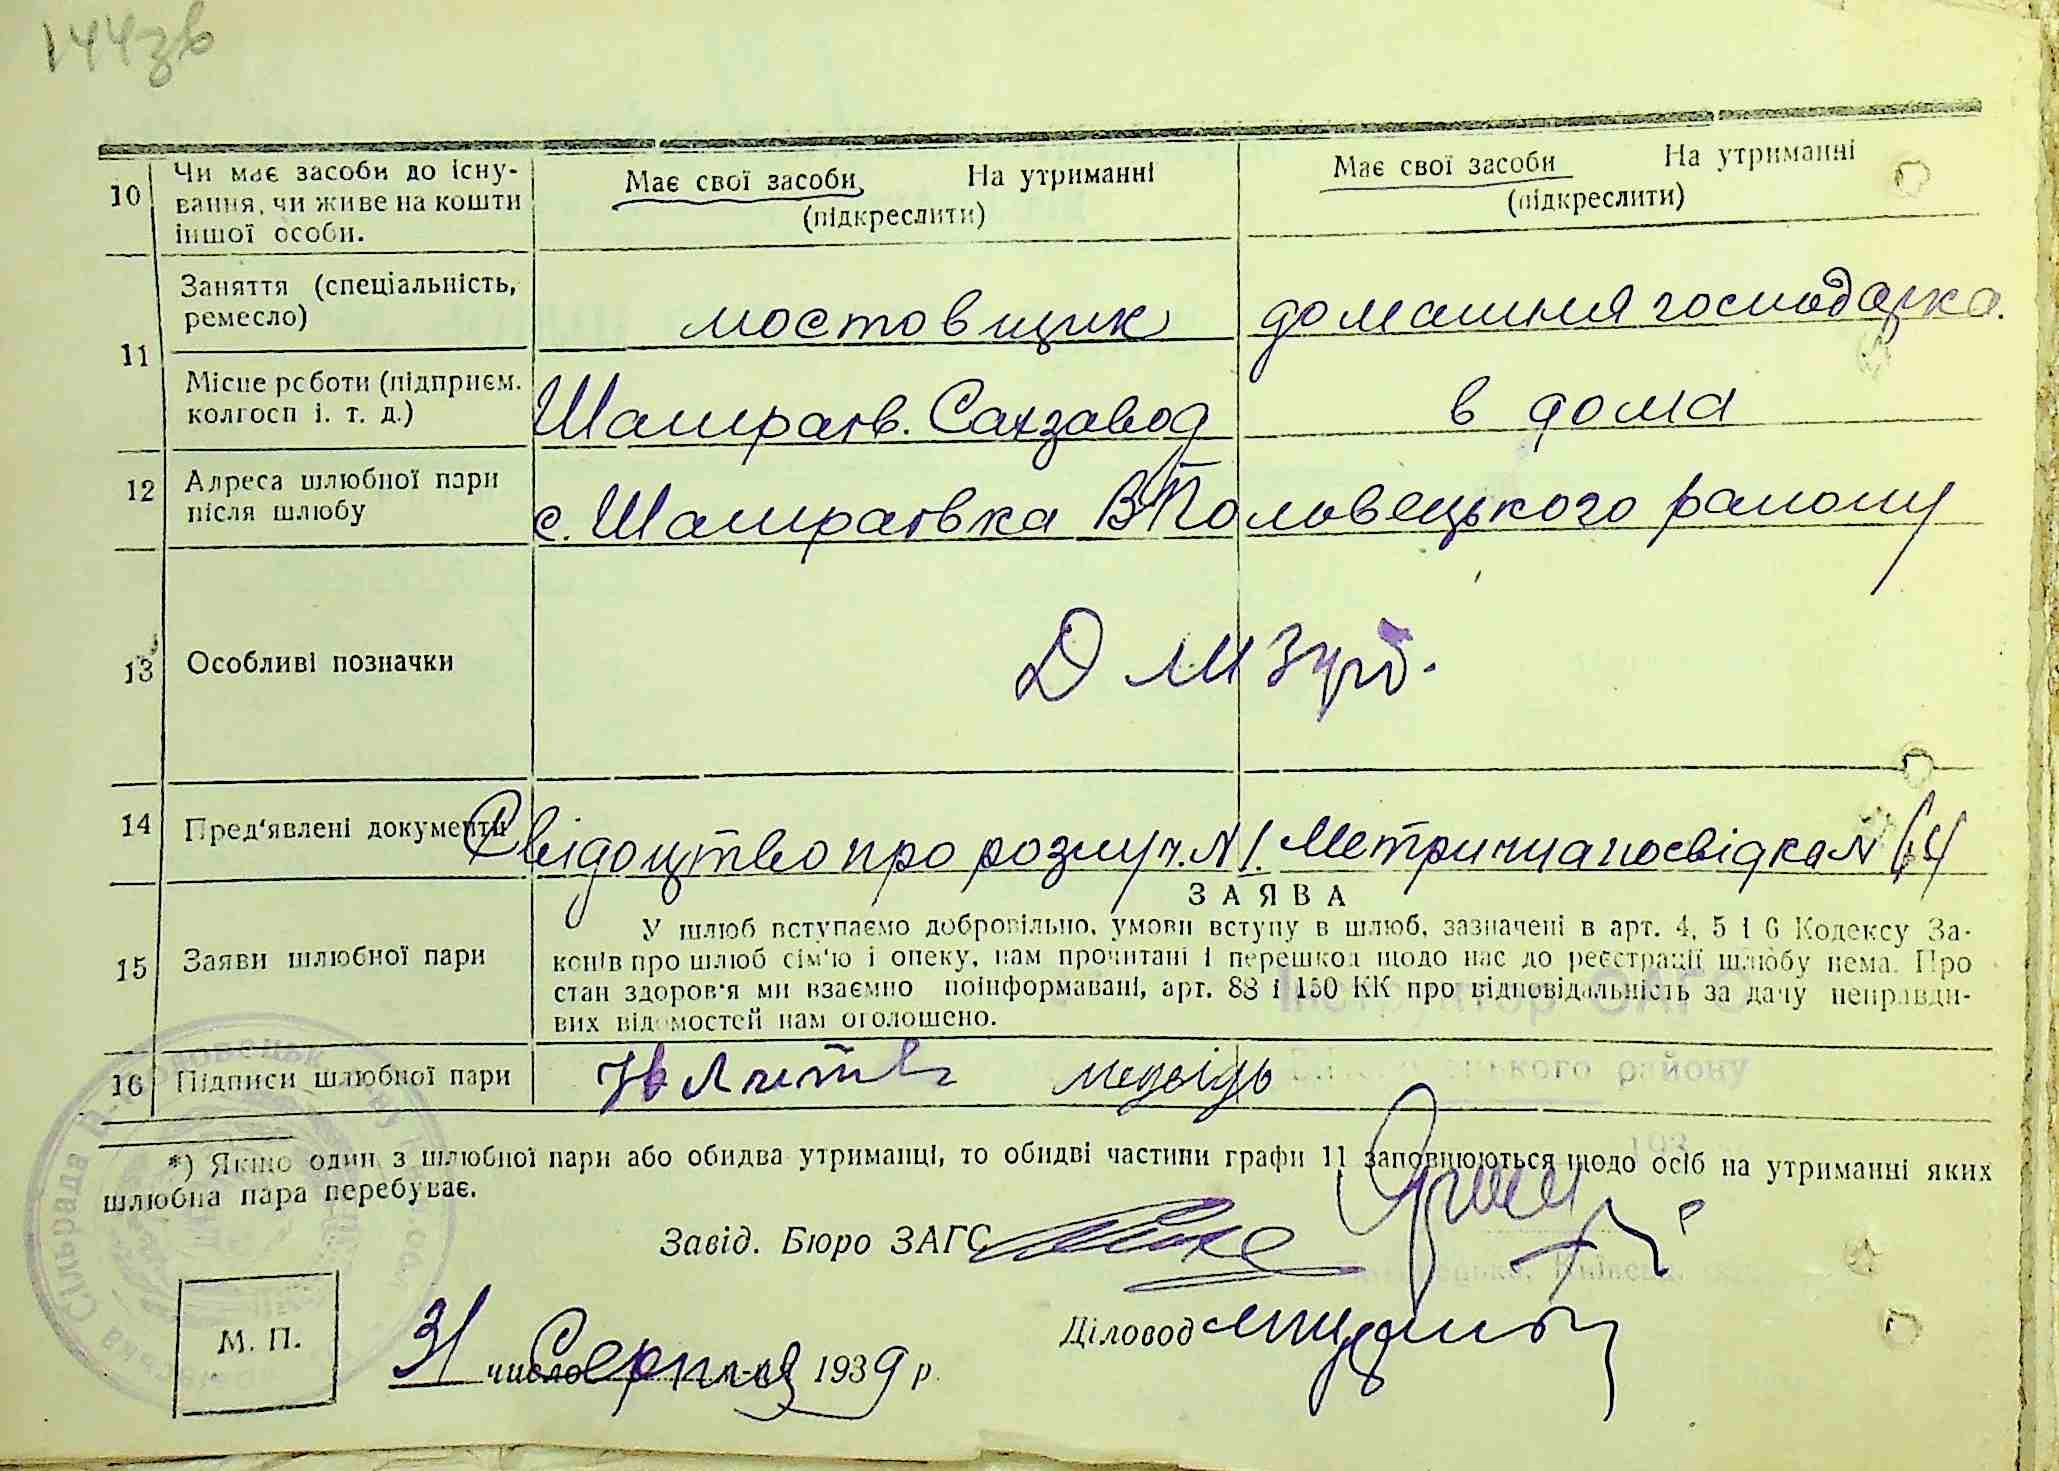 144зв
10 Чи має засоби до існу-
вання, чи живе на кошти
іншої особи.
Має свої засоби На утриманні
(підкреслити)
Має свої засоби На утриманні
(підкреслити)
11 Заняття (спеціальність,
ремесло)
мостовщик
домашня господарка.
Місце роботи (підприєм.
колгосп і. т. д.)
Шамраєв. Сахзавод
в дома
12 Адреса шлюбної пари
після шлюбу
с. Шамраєвка В Половецького району
13 Особливі позначки
14 Пред'явлені документи
Свідоцтво про розлуч. N 1. Метрична посвідка N 64
15 Заяви шлюбної пари
ЗАЯВА
У шлюб вступаємо добровільно, умови вступу в шлюб, зазначені в арт. 4, 5 і 6 Кодексу За-
конів про шлюб сім'ю і опеку, нам прочитані і перешкод щодо нас до реєстрації шлюбу нема. Про
стан здоров'я ми взаємно поінформавані, арт. 88 і 150 КК про відповідальність за дачу неправди-
вих відомостей нам оголошено.
Інструктор ЗАГС
16 Підписи шлюбної пари
медвідь
району
*) Якщо один з шлюбної пари або обидва утриманці, то обидві частини графи 11 заповнюються щодо осіб на утриманні яких
шлюбна пара перебуває.
Завід. Бюро ЗАГС
Діловод
М. П.
31 число Серпня 1939 р.
Сільрада